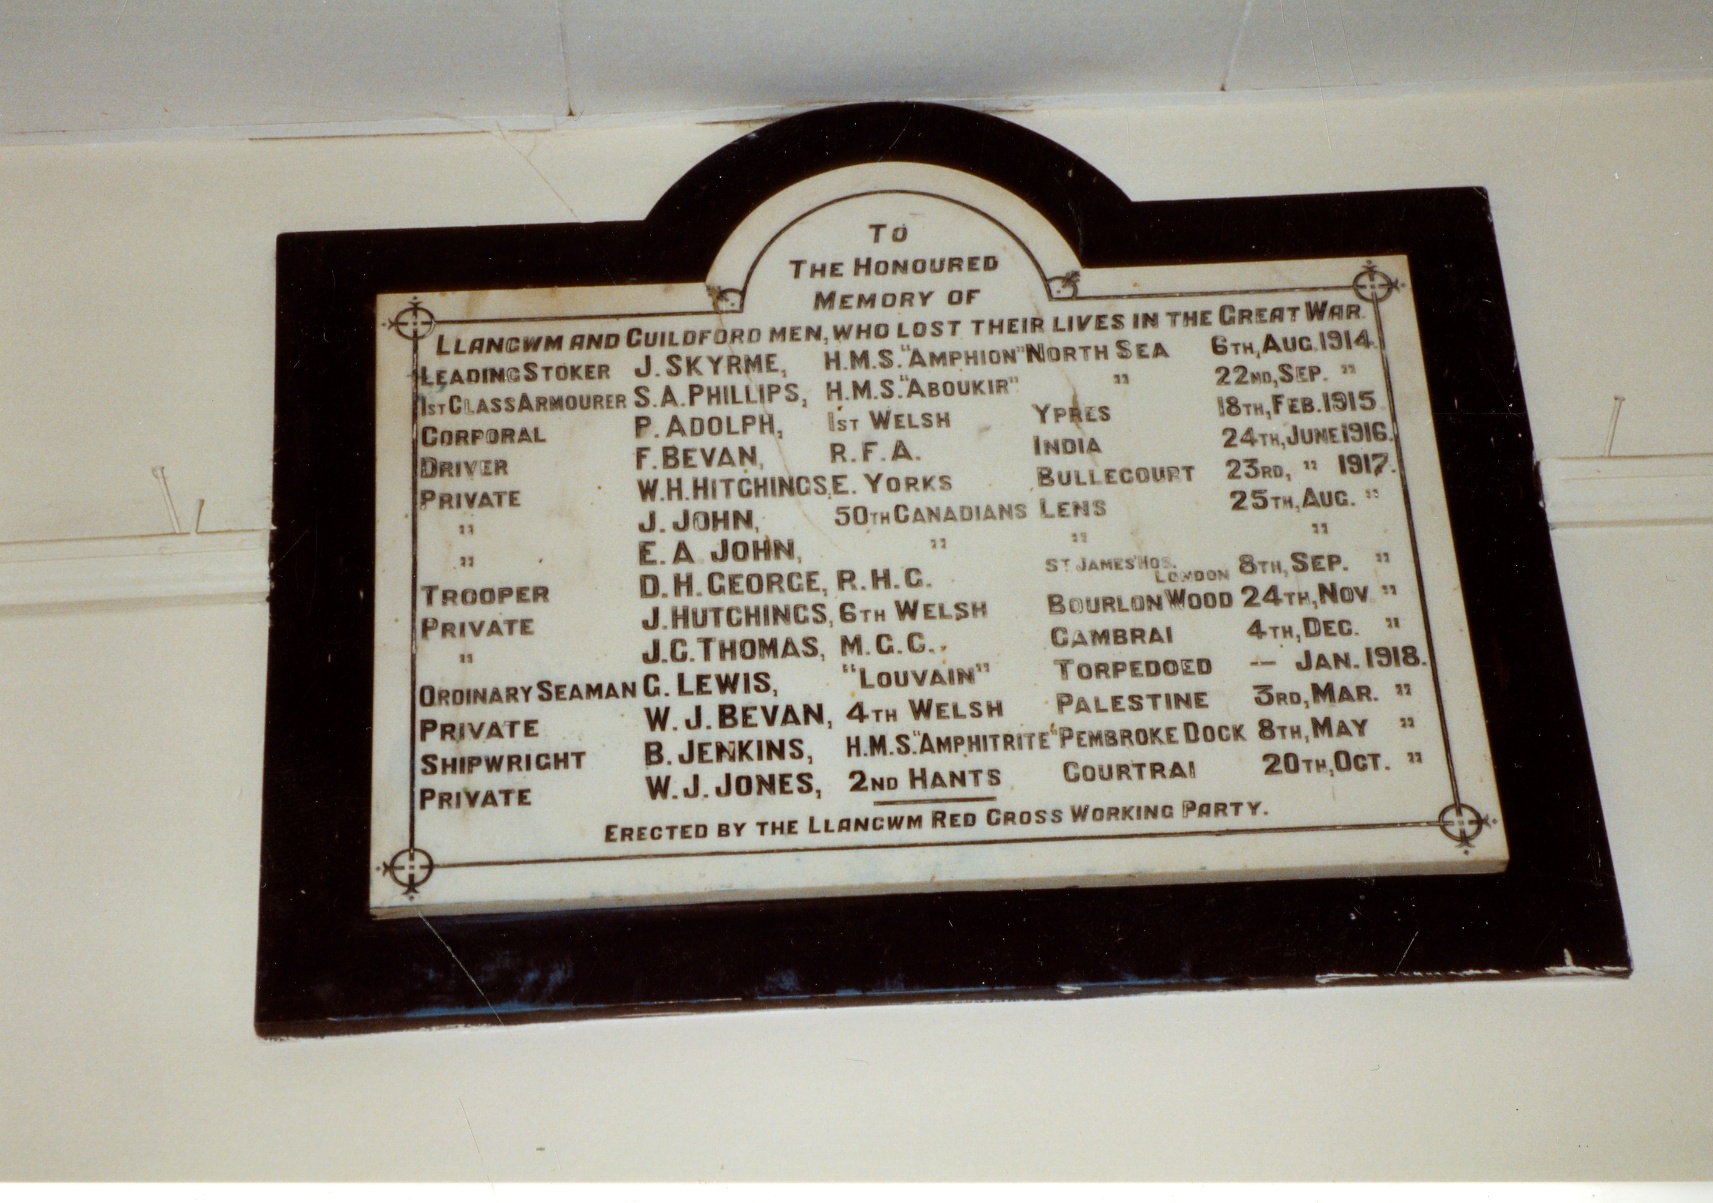 TO
THE HONOURED
MEMORY OF
LLANGWM AND GUILDFORD MEN, WHO LOST THEIR LIVES IN THE GREAT WAR.
LEADING STOKER J. SKYRME, H.M.S. "AMPHION" NORTH SEA 6TH, AUG. 1914.
1ST CLASS ARMOURER S. A. PHILLIPS, H.M.S. "ABOUKIR" " 22ND, SEP. "
CORPORAL P. ADOLPH, 1ST WELSH YPRES 18TH, FEB. 1915.
DRIVER F. BEVAN, R. F. A. INDIA 24TH, JUNE 1916.
PRIVATE W. H. HITCHINGS, E. YORKS BULLECOURT 23RD, " 1917.
" J. JOHN, 50TH CANADIANS LENS 25TH, AUG. "
" E. A. JOHN, " " "
TROOPER D. H. GEORGE, R. H. G. ST JAMES' HOS. LONDON 8TH, SEP. "
PRIVATE J. HUTCHINGS, 6TH WELSH BOURLON WOOD 24TH, NOV. "
" J. C. THOMAS, M. G. C. CAMBRAI 4TH, DEC. "
ORDINARY SEAMAN G. LEWIS, "LOUVAIN" TORPEDOED — JAN. 1918.
PRIVATE W. J. BEVAN, 4TH WELSH PALESTINE 3RD, MAR. "
SHIPWRIGHT B. JENKINS, H.M.S. "AMPHITRITE" PEMBROKE DOCK 8TH, MAY "
PRIVATE W. J. JONES, 2ND HANTS COURTRAI 20TH, OCT. "
ERECTED BY THE LLANGWM RED CROSS WORKING PARTY.